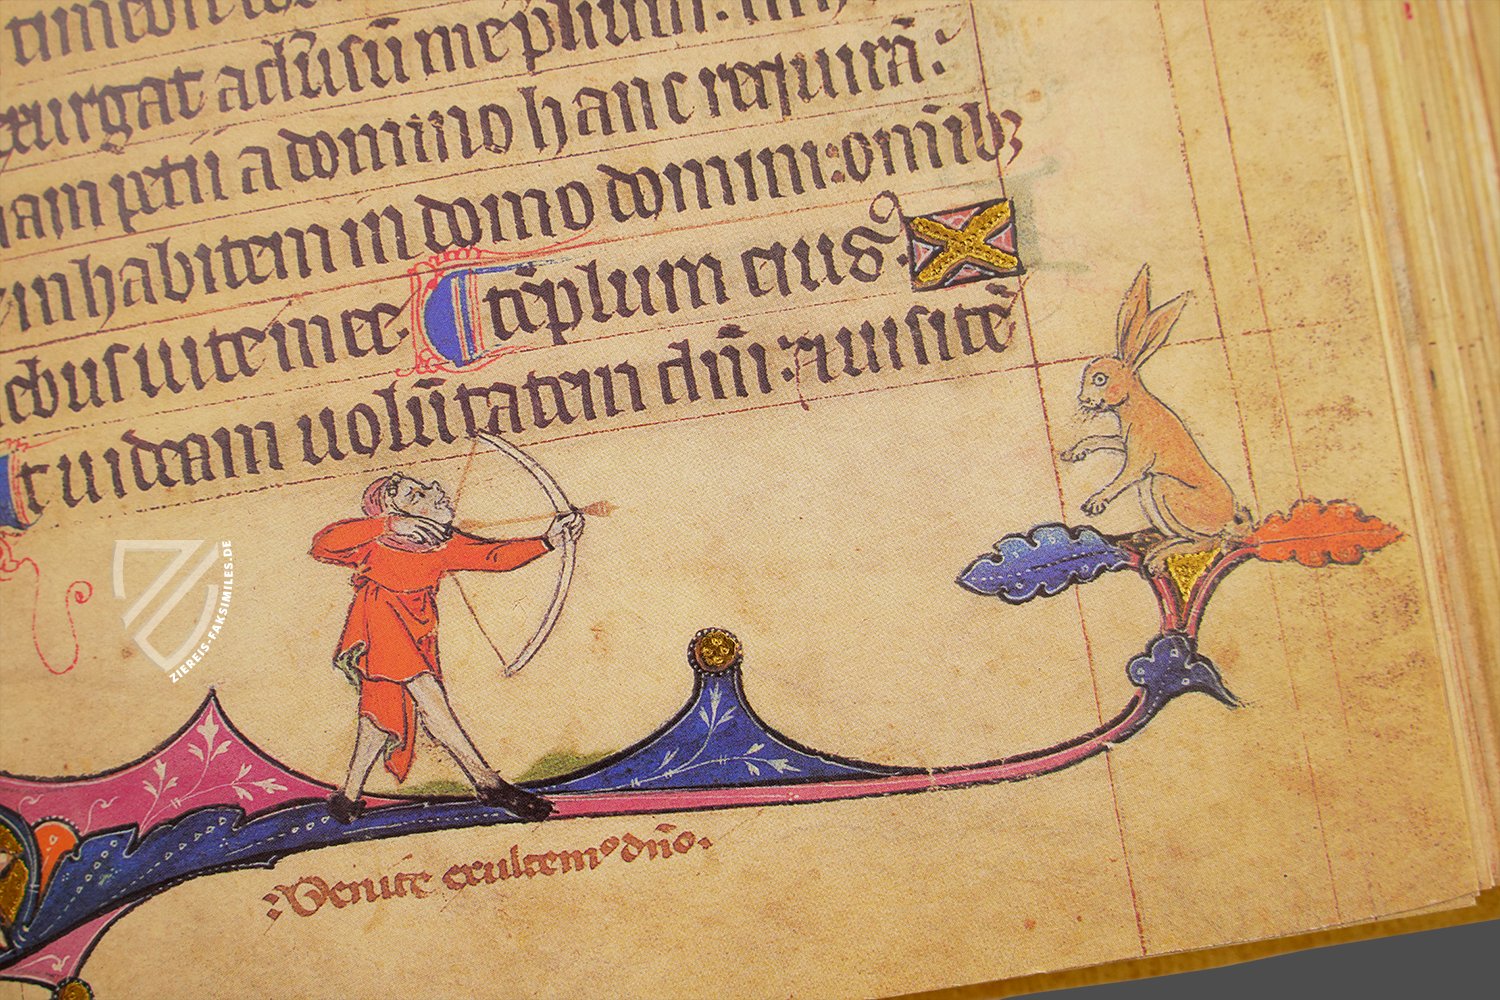 exurgat adūsū me pliuin.
am petii a domino hanc requirā:
inhabitem in domo domini: omnibꝫ
ebus uite mee. Et tēplum eiusꝰ.
t uideam uolūtatem dñi: ⁊ uisitē
:Venite exultemꝰ dño.
ZIEREIS-FAKSIMILES.DE